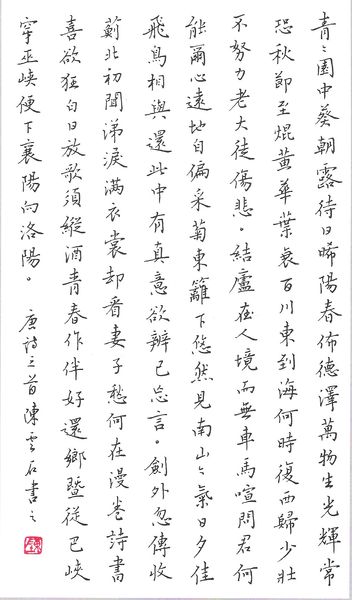 青〻園中葵朝露待日晞陽春佈德澤萬物生光輝常
恐秋節至焜黃華葉衰百川東到海何時復西歸少壯
不努力老大徒傷悲。結廬在人境而無車馬喧問君何
能爾心遠地自偏采菊東籬下悠然見南山〻氣日夕佳
飛鳥相與還此中有真意欲辨已忘言。劍外忽傳收
薊北初聞涕淚滿衣裳却看妻子愁何在漫卷詩書
喜欲狂白日放歌須縱酒青春作伴好還鄉暨從巴峽
穿巫峽便下襄陽向洛陽。 唐詩三首陳雲石書之